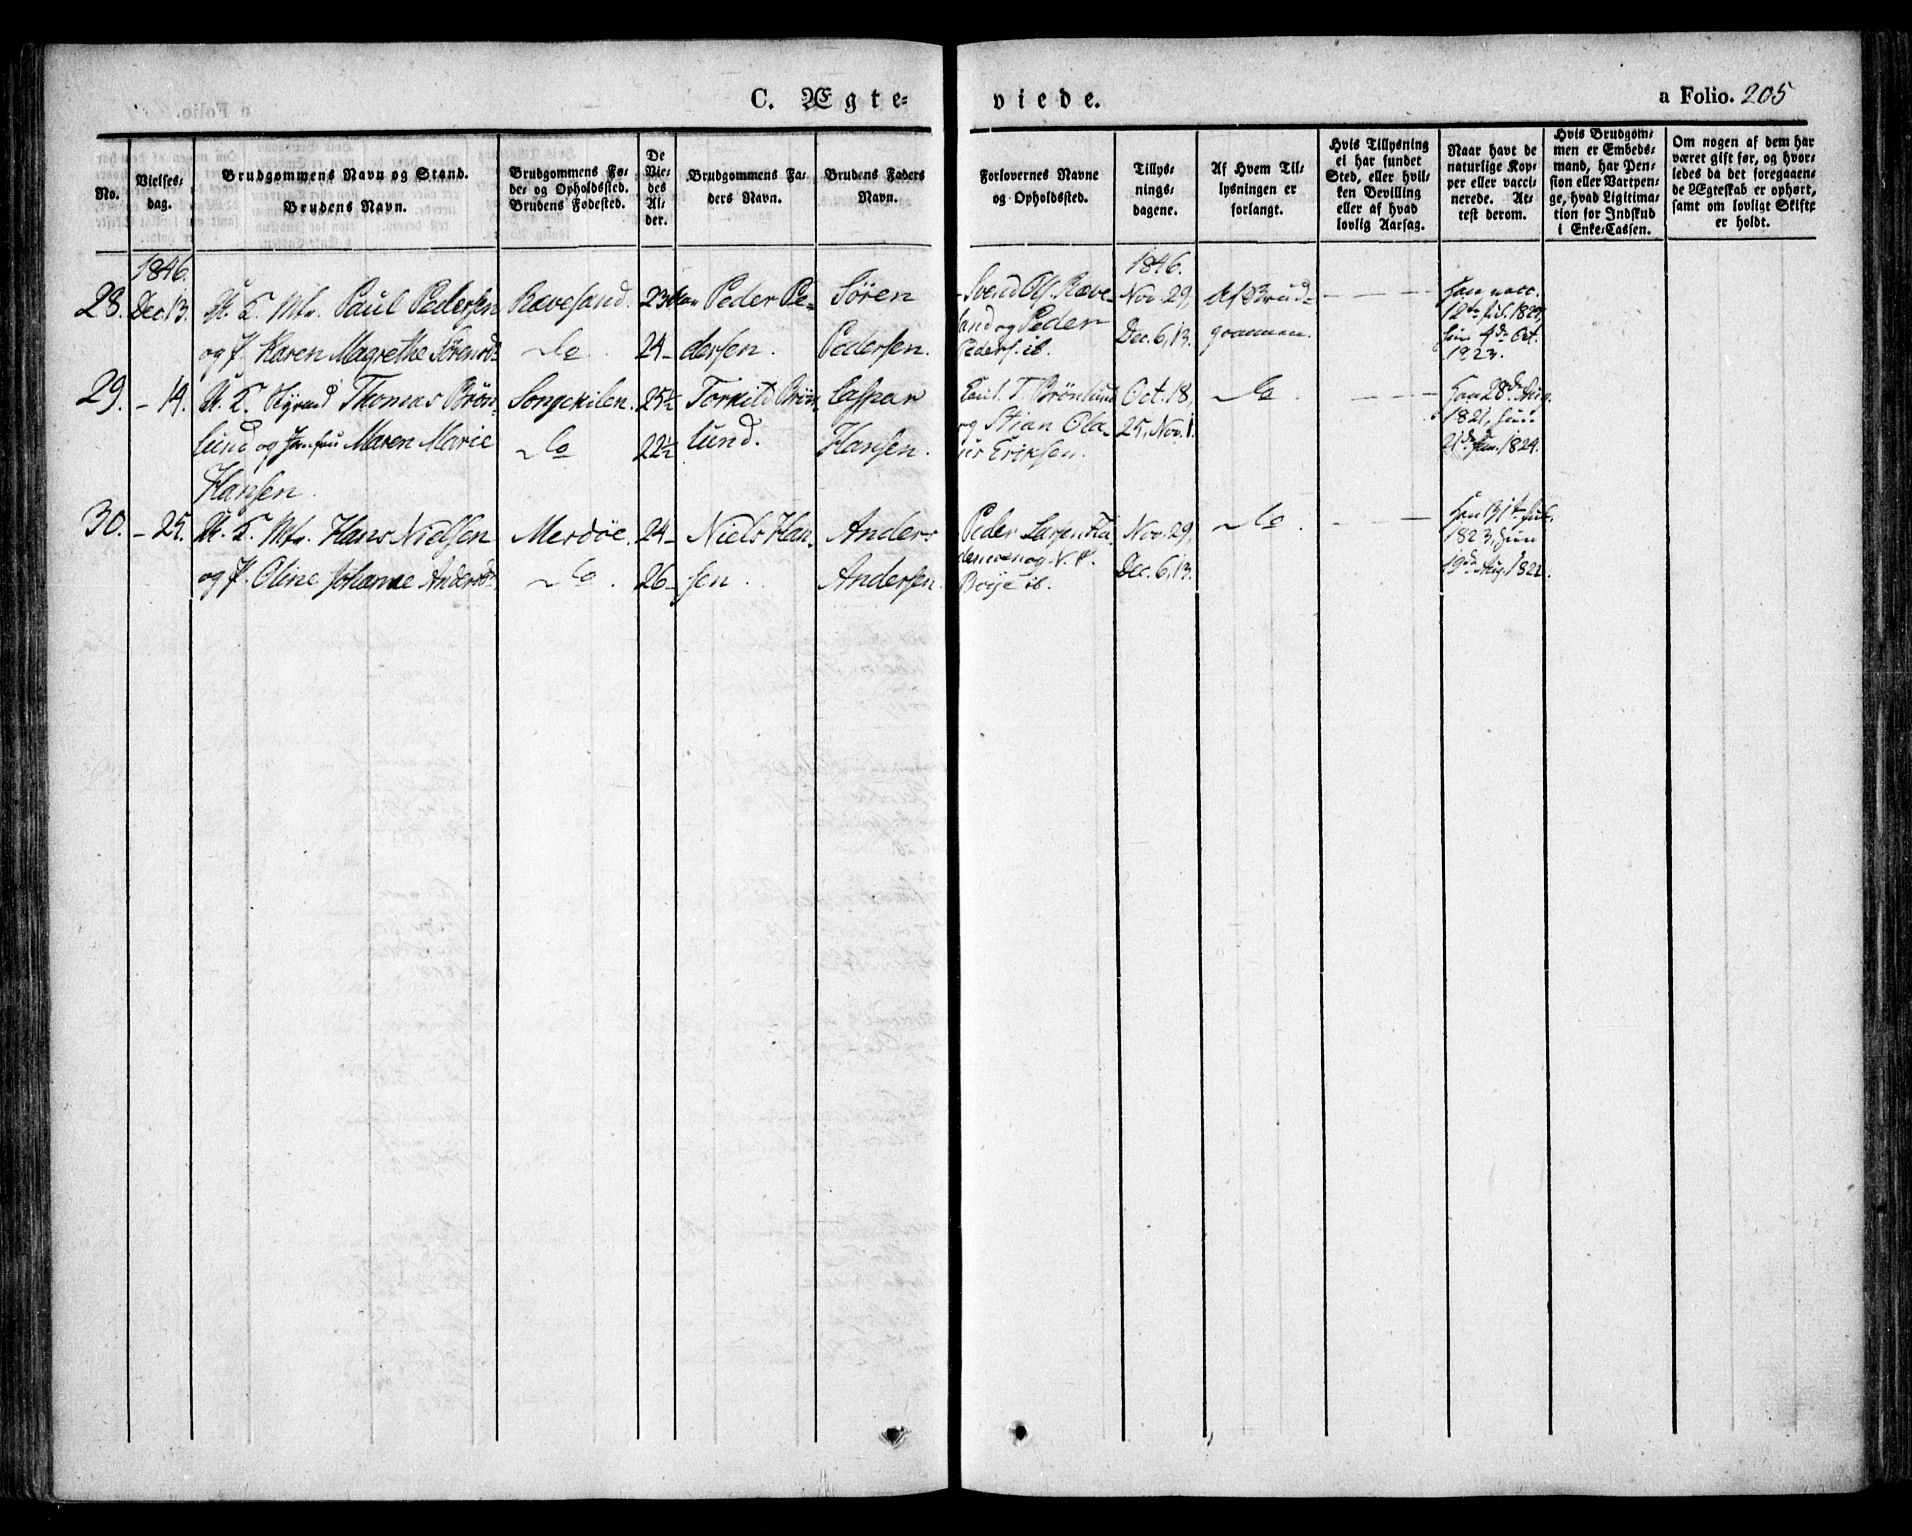 C. Ægte-
viede.
a Folio. 205
No.
Vielses-
dag.
Brudgommens Navn og Stand.
Brudens Navn.
Brudgommens Fø-
de- og Opholdssted.
Brudens Fødested.
De
Vie-
des
Al-
der.
Brudgommens Fa-
ders Navn.
Brudens Faders
Navn.
Forlovernes Navne
og Opholdssted.
Tillys-
nings-
dagene.
Af Hvem Til-
lysningen er
forlangt.
Hvis Tillysning
ei har fundet
Sted, eller hvil-
ken Bevilling
eller af hvad
lovlig Aarsag.
Naar havt de
naturlige Kop-
per eller vacci-
nerede. At-
test derom.
Hvis Brudgom-
men er Embeds-
mand, har Pen-
sion eller Vartpen-
ge, hvad Ligitima-
tion for Indskud
i Enke-Cassen.
Om nogen af dem har
været gift før, og hvor-
ledes da det foregaaen-
de Ægteskab er ophørt,
samt om lovligt Skifte
er holdt.
1846.
28. Dec. 13. U. K. Mtr. Paul Pedersen
og P. Karen Magrethe Sørensd.
Ravesand.
Do
23
24
Peder Pe-
dersen.
Søren
Pedersen.
Svend Ols. Rave-
sand og Peder
Peders. ib.
1846.
Nov. 29,
Dec. 6, 13.
Af Brud-
gommen.
Han vacc.
12te Jul. 1823,
hun 4de Oct.
1823.
29. - 19. Thomas Brøn-
lund og Jomfru Maren Marie
Hansen.
Songekilen.
Do
25½
22½
Torkild Brøn-
lund.
Caspar
Hansen.
T. Brønlund
og Stian Ola-
us Eriksen.
Oct. 18,
25, Nov. 1.
Do
Han 28de Aug.
1821, hun
21de Jun. 1824.
30. - 25. U. K. Mtr. Hans Nielsen
og P. Oline Johanne Andersd.
Merdøe.
Do.
24
26
Niels Han-
sen.
Anders
Andersen.
Peder Larsen
og N. P.
Boije ib.
Nov. 29,
Dec. 6, 13.
Do.
Han 31te Jul.
1823, hun
19de Aug. 1822.